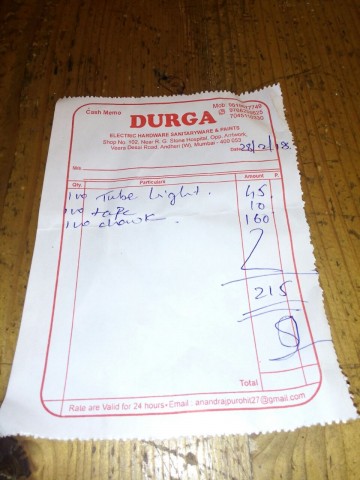 Cash Memo
Mob.
DURGA
ELECTRIC HARDWARE SANITARYWARE & PAINTS
Shop No. 102, Near R. G. Stone Hospital, Opp.
Veera Desai Road, Andheri (W), Mumbai - 400 053
Date 28/2/18
M/s.
Qty. Particulars Amount P.
1 no Tube Light. 45
1 no tape 10
1 no 160
215
Total
Rate are Valid for 24 hours • Email : anandrajpurohit27@gmail.com